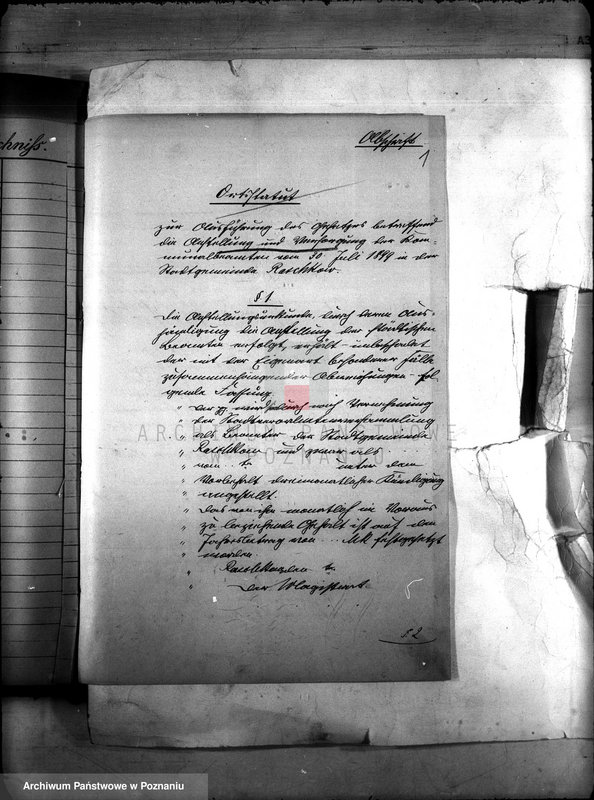 chniss.
Abschrift
1
Ortsstatut
zur Ausführung des Gesetzes betreffend
die Anstellung und Versorgung der Kom-
munalbeamten vom 30. Juli 1899 in der
Stadtgemeinde Raschkow.
§ 1
Die Anstellungsurkunde, durch deren Aus-
händigung die Anstellung der städtischen
Beamten erfolgt, erhält - unbeschadet
der mit der Eigenart besonderer Fälle
zusammenhängender Abweichungen - fol-
gende Fassung:
" Der pp wird hierdurch nach Vernehmung
" der Stadtverordnetenversammlung
" als Beamter der Stadtgemeinde
" Raschkow und zwar als ...
" vom .. ten unter dem
" Vorbehalt dreimonatlicher Kündigung
" angestellt.
" Das von ihm monatlich im Voraus
" zu beziehende Gehalt ist auf den
" Jahresbetrag von ... Mk festgesetzt
" worden.
" Raschkow, den
" Der Magistrat
§ 2
ARCHIWUM PAŃSTWOWE
POZNAŃ
Archiwum Państwowe w Poznaniu